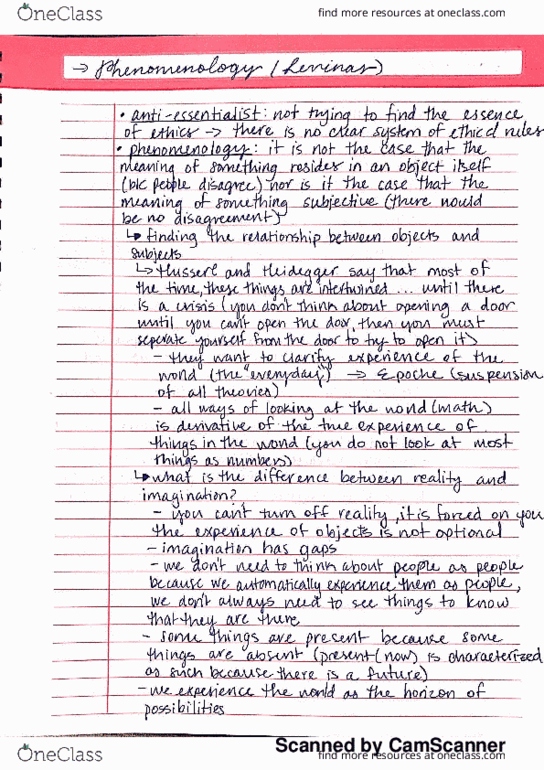 OneClass
find more resources at oneclass.com
→ Phenomenology (Levinas)
• anti-essentialist: not trying to find the essence
of ethics → there is no clear system of ethical rules
• phenomenology: it is not the case that the
meaning of something resides in an object itself
(b/c people disagree) nor is it the case that the
meaning of something subjective (there would
be no disagreement)
↳ finding the relationship between objects and
subjects
↳ Husserl and Heidegger say that most of
the time, these things are intertwined ... until there
is a crisis (you don't think about opening a door
until you can't open the door, then you must
seperate yourself from the door to try to open it)
- they want to clarify experience of the
world (the "everyday") → Epoche (suspension
of all theories)
- all ways of looking at the world (math)
is derivative of the true experience of
things in the world (you do not look at most
things as numbers)
↳ what is the difference between reality and
imagination?
- you can't turn off reality, it is forced on you
the experience of objects is not optional
- imagination has gaps
- we don't need to think about people as people
because we automatically experience them as people,
we don't always need to see things to know
that they are there
- some things are present because some
things are absent (present (now) is characterized
as such because there is a future)
- we experience the world as the horizon of
possibilities
Scanned by CamScanner
OneClass
find more resources at oneclass.com